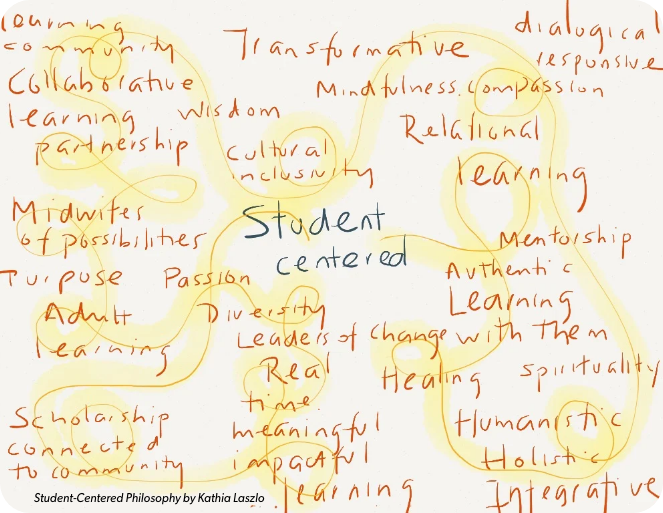 learning
community
Transformative
dialogical
responsive
Collaborative
learning
partnership
wisdom
Mindfulness. compassion
Relational
learning
cultural
inclusivity
Student
centered
Midwifes
of possibilities
Mentorship
Purpose Passion
Authentic
Learning
Adult
learning
Diversity
Leaders of change with them
Real
time
meaningful
impactful
learning
Healing
spirituality
Scholarship
connected
to community
Humanistic
Holistic
Integrative
Student-Centered Philosophy by Kathia Laszlo